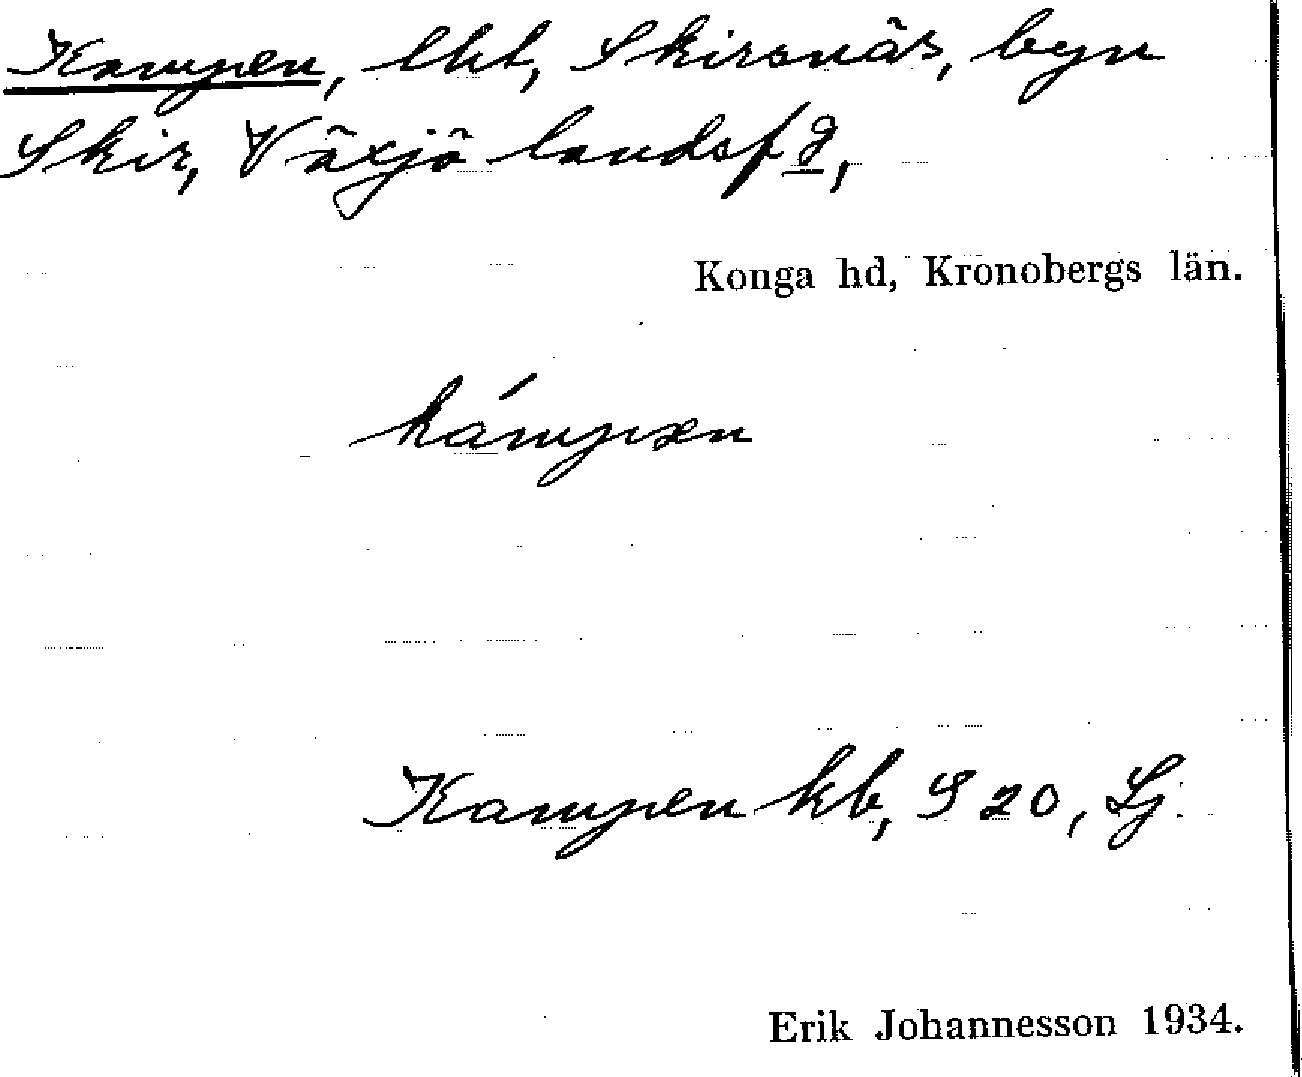 Kampen, lht, Skirsnäs, byn
Skir, Växjö landsfg,
Konga hd, Kronobergs län.
kámpən
Kampen kb, S 20, Lj
Erik Johannesson 1934.